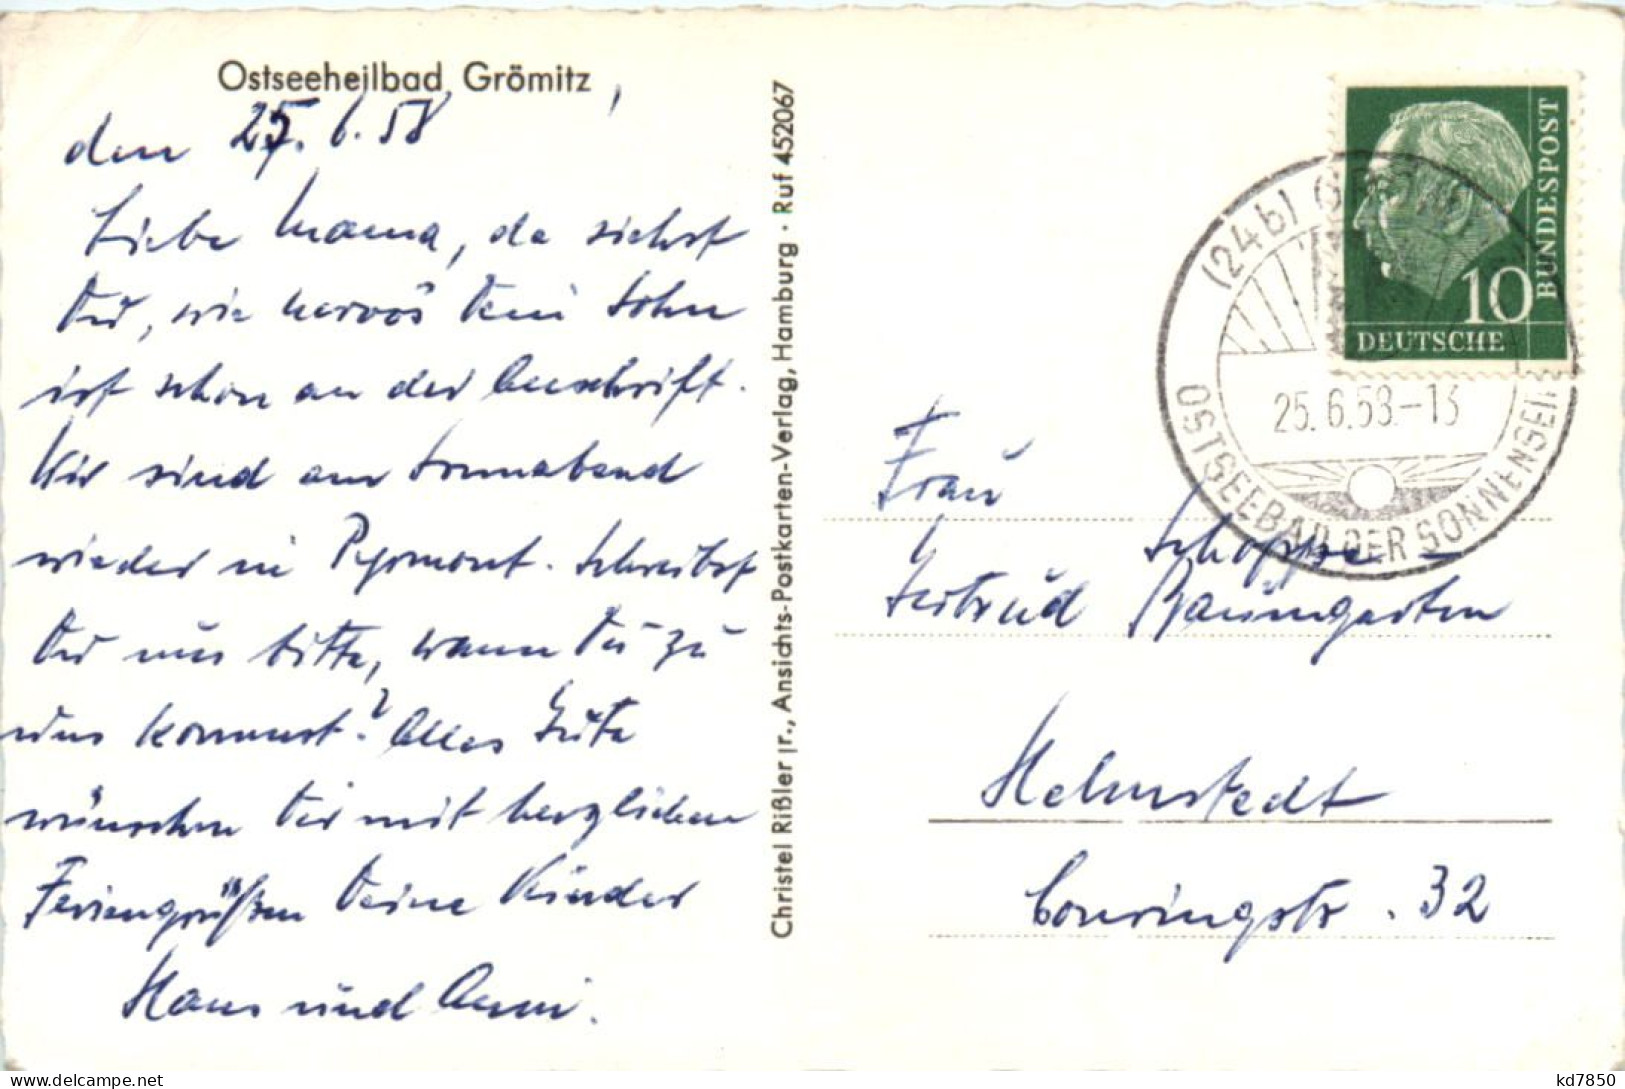 Ostseeheilbad Grömitz
den 25.6.58
Liebe Mama, da siehst
Du, wie nervös Dein Sohn
ist schon an der Anschrift.
Wir sind am Sonnabend
wieder in Pyrmont. Schreibst
Du uns bitte, wann Du zu
uns kommst? Alles Gute
wünschen Dir mit herzlichen
Feriengrüßen Deine Kinder
Hans und Anni.
Christel Rißler jr., Ansichts-Postkarten-Verlag, Hamburg · Ruf 452067
BUNDESPOST
10
DEUTSCHE
(24b) GRÖMITZ
25.6.58.-13
OSTSEEBAD DER SONNENSEITE
Frau
Schoppe
Gertrud Baumgarten
Helmstedt
Conringstr. 32
kd7850